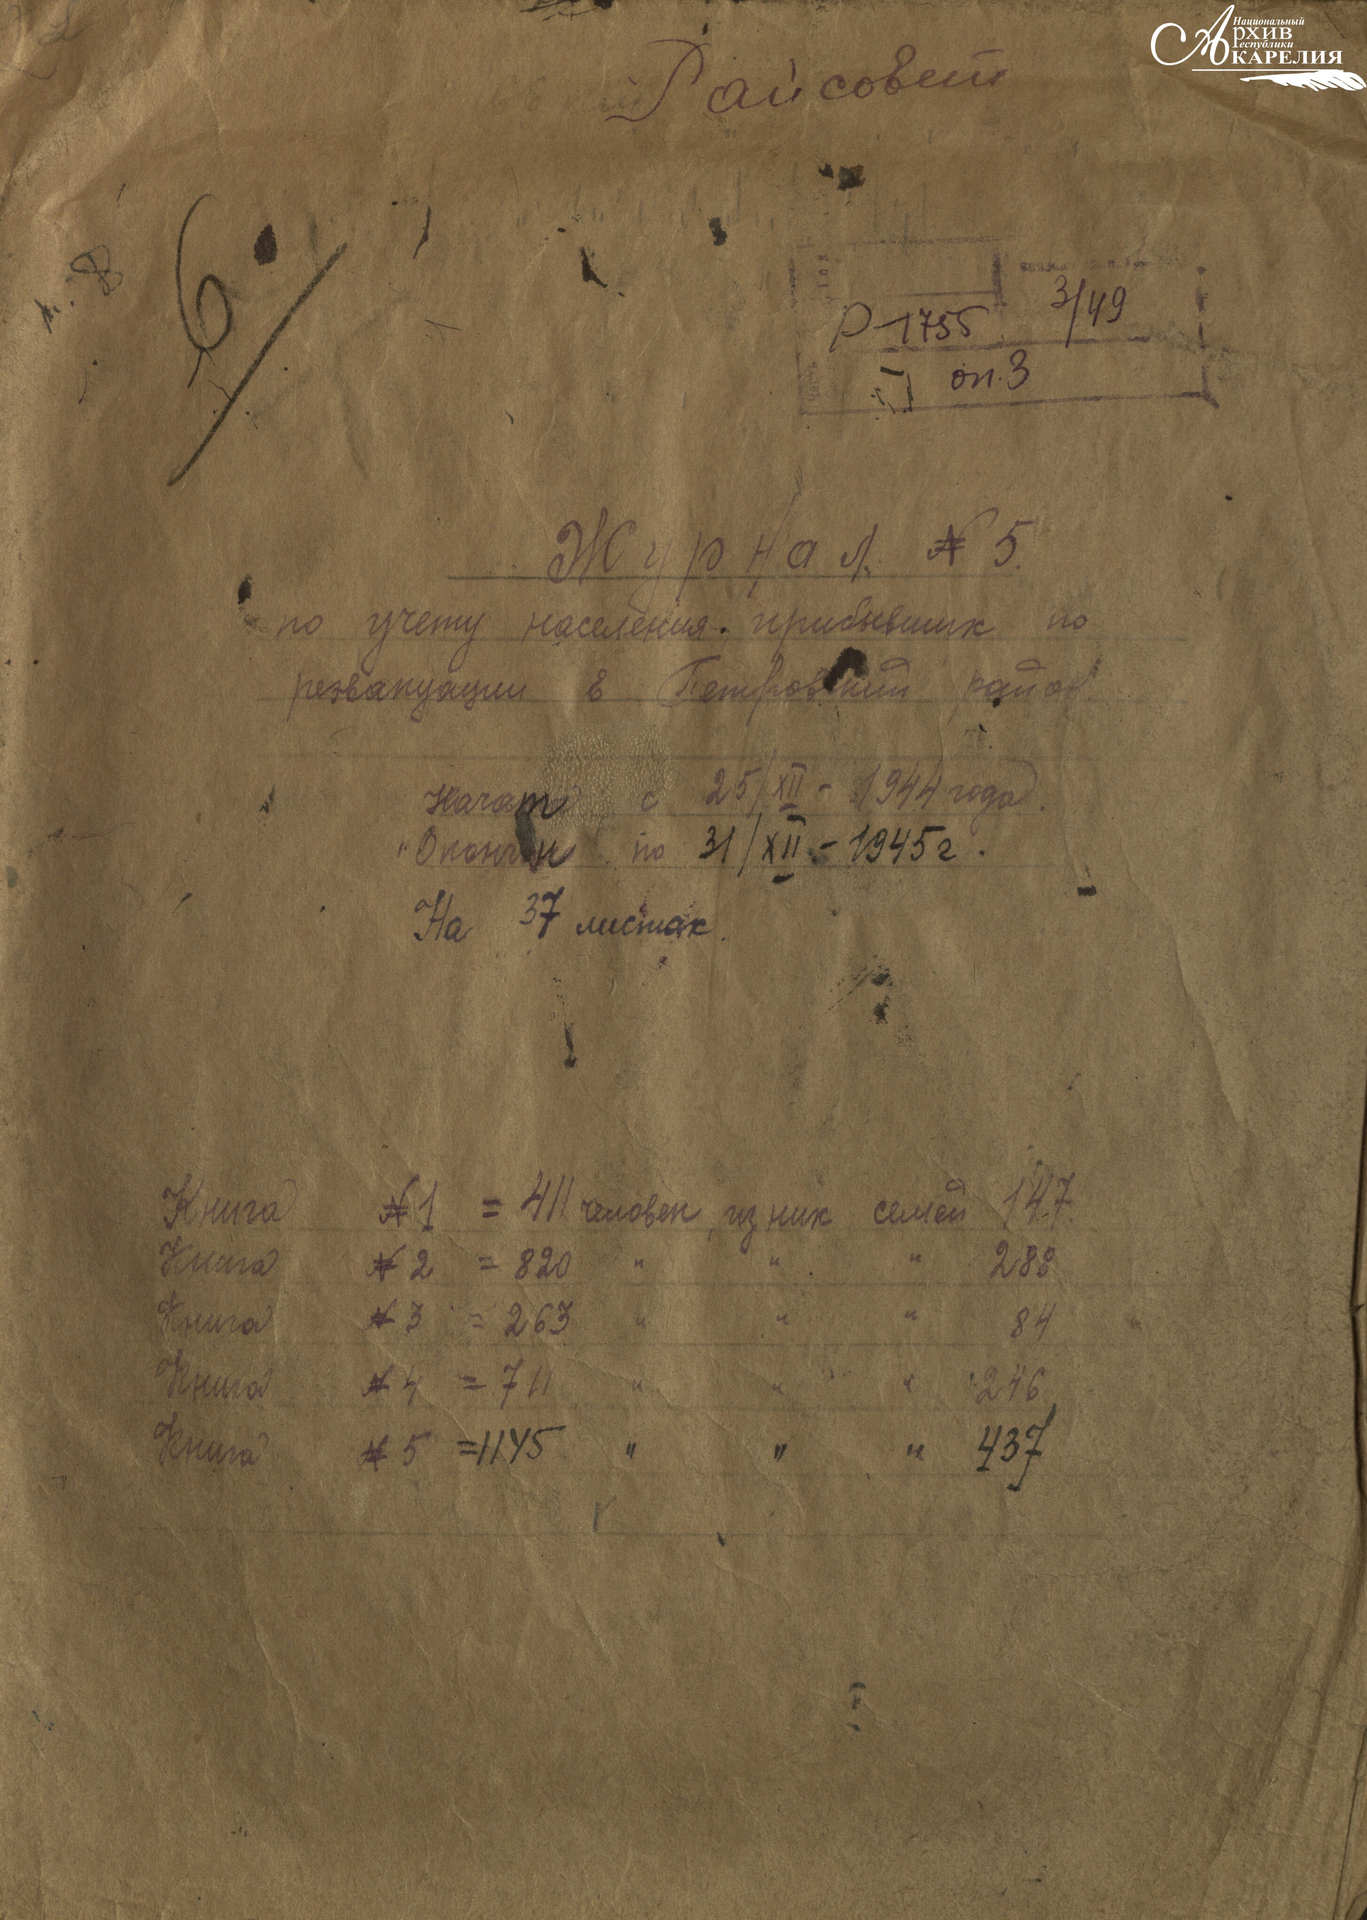 Национальный
Архив
Республики
Карелия
Райсовет
6
Р-1755
3/49
оп. 3
Журнал № 5.
по учету населения прибывших по
реэвакуации в Петровский район
Начат с 25/XII - 1944 года.
Окончен по 31/XII - 1945 г.
На 37 листах.
Книга № 1 = 411 человек, из них семей 147
Книга № 2 = 820 " " " 288
Книга № 3 = 263 " " " 84
Книга № 4 = 711 " " " 246
Книга № 5 = 1145 " " " 437